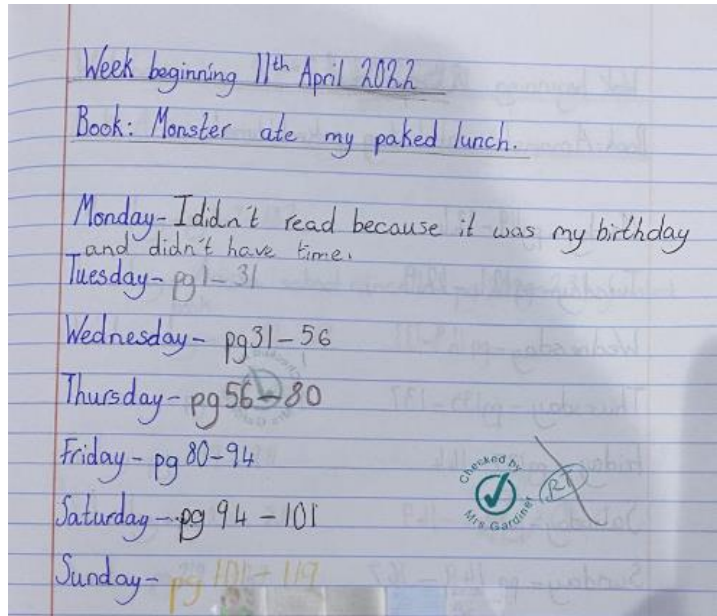 Week beginning 11th April 2022
Book: Monster ate my paked lunch.
Monday- I didn't read because it was my birthday
and didn't have time.
Tuesday- pg 1- 31
Wednesday- pg 31-56
Thursday- pg 56-80
Friday- pg 80-94
Saturday- pg 94-101
Sunday- pg 101-119
Checked by
Mrs Gardiner